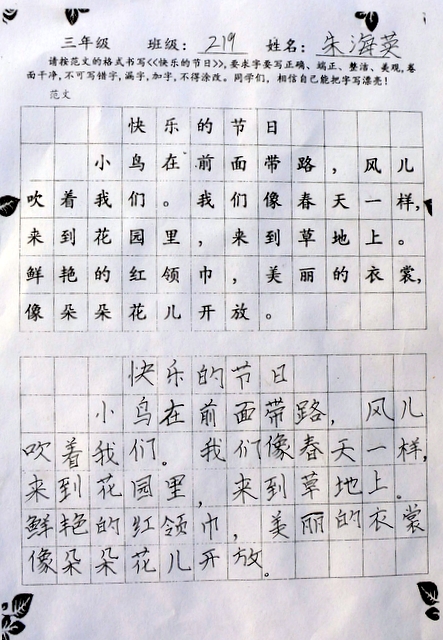 三年级 班级： 219 姓名： 朱海英
请按范文的格式书写<<快乐的节日>>,要求字要写正确、端正、整洁、美观,卷
面干净,不可写错字,漏字,加字,不得涂改。同学们，相信自己能把字写漂亮！
范文
快乐的节日
小鸟在前面带路，风儿
吹着我们。我们像春天一样，
来到花园里，来到草地上。
鲜艳的红领巾，美丽的衣裳，
像朵朵花儿开放。
快乐的节日
小鸟在前面带路，风儿
吹着我们。我们像春天一样，
来到花园里，来到草地上。
鲜艳的红领巾，美丽的衣裳
像朵朵花儿开放。